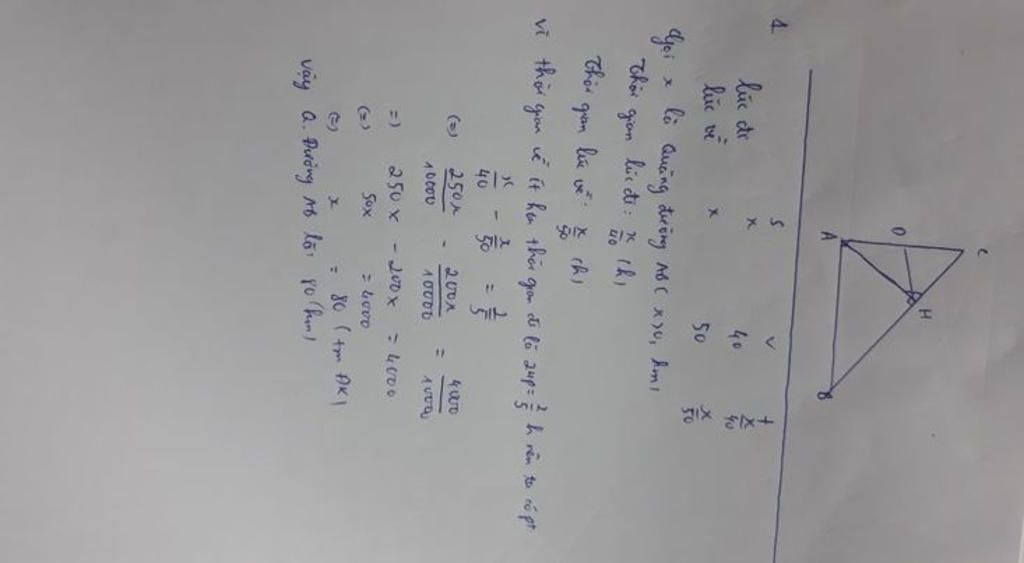 C
O
H
A
B
1
S v t
lúc đi x 40 x/40
lúc về x 50 x/50
Gọi x là Quãng đường AB ( x>0, km)
Thời gian lúc đi: x/40 (h)
Thời gian lúc về: x/50 (h)
Vì thời gian về ít hơn thời gian đi là 24p = 2/5 h nên ta có pt
x/40 - x/50 = 2/5
(=) 250x/10000 - 200x/10000 = 4000/10000
=) 250x - 200x = 4000
(=) 50x = 4000
(=) x = 80 (tm ĐK)
Vậy Q. Đường AB là: 80 (km)